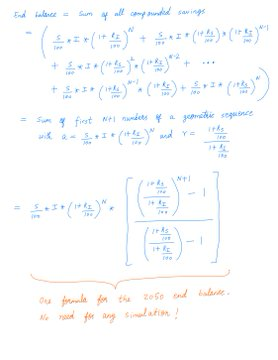 End balance = Sum of all compounded savings
= ( S/100 * I * (1 + R_I/100)^N + S/100 * I * (1 + R_S/100) * (1 + R_I/100)^N-1
+ S/100 * I * (1 + R_S/100)^2 * (1 + R_I/100)^N-2 + ...
+ S/100 * I * (1 + R_S/100)^N-1 * (1 + R_I/100) + S/100 * I * (1 + R_S/100)^N )
= Sum of first N+1 numbers of a geometric sequence
with a = S/100 * I * (1 + R_I/100)^N and r = (1 + R_S/100) / (1 + R_I/100)
= S/100 * I * (1 + R_I/100)^N * [ ( ( (1 + R_S/100) / (1 + R_I/100) )^N+1 - 1 ) / ( ( (1 + R_S/100) / (1 + R_I/100) ) - 1 ) ]
One formula for the 2050 end balance.
No need for any simulation!